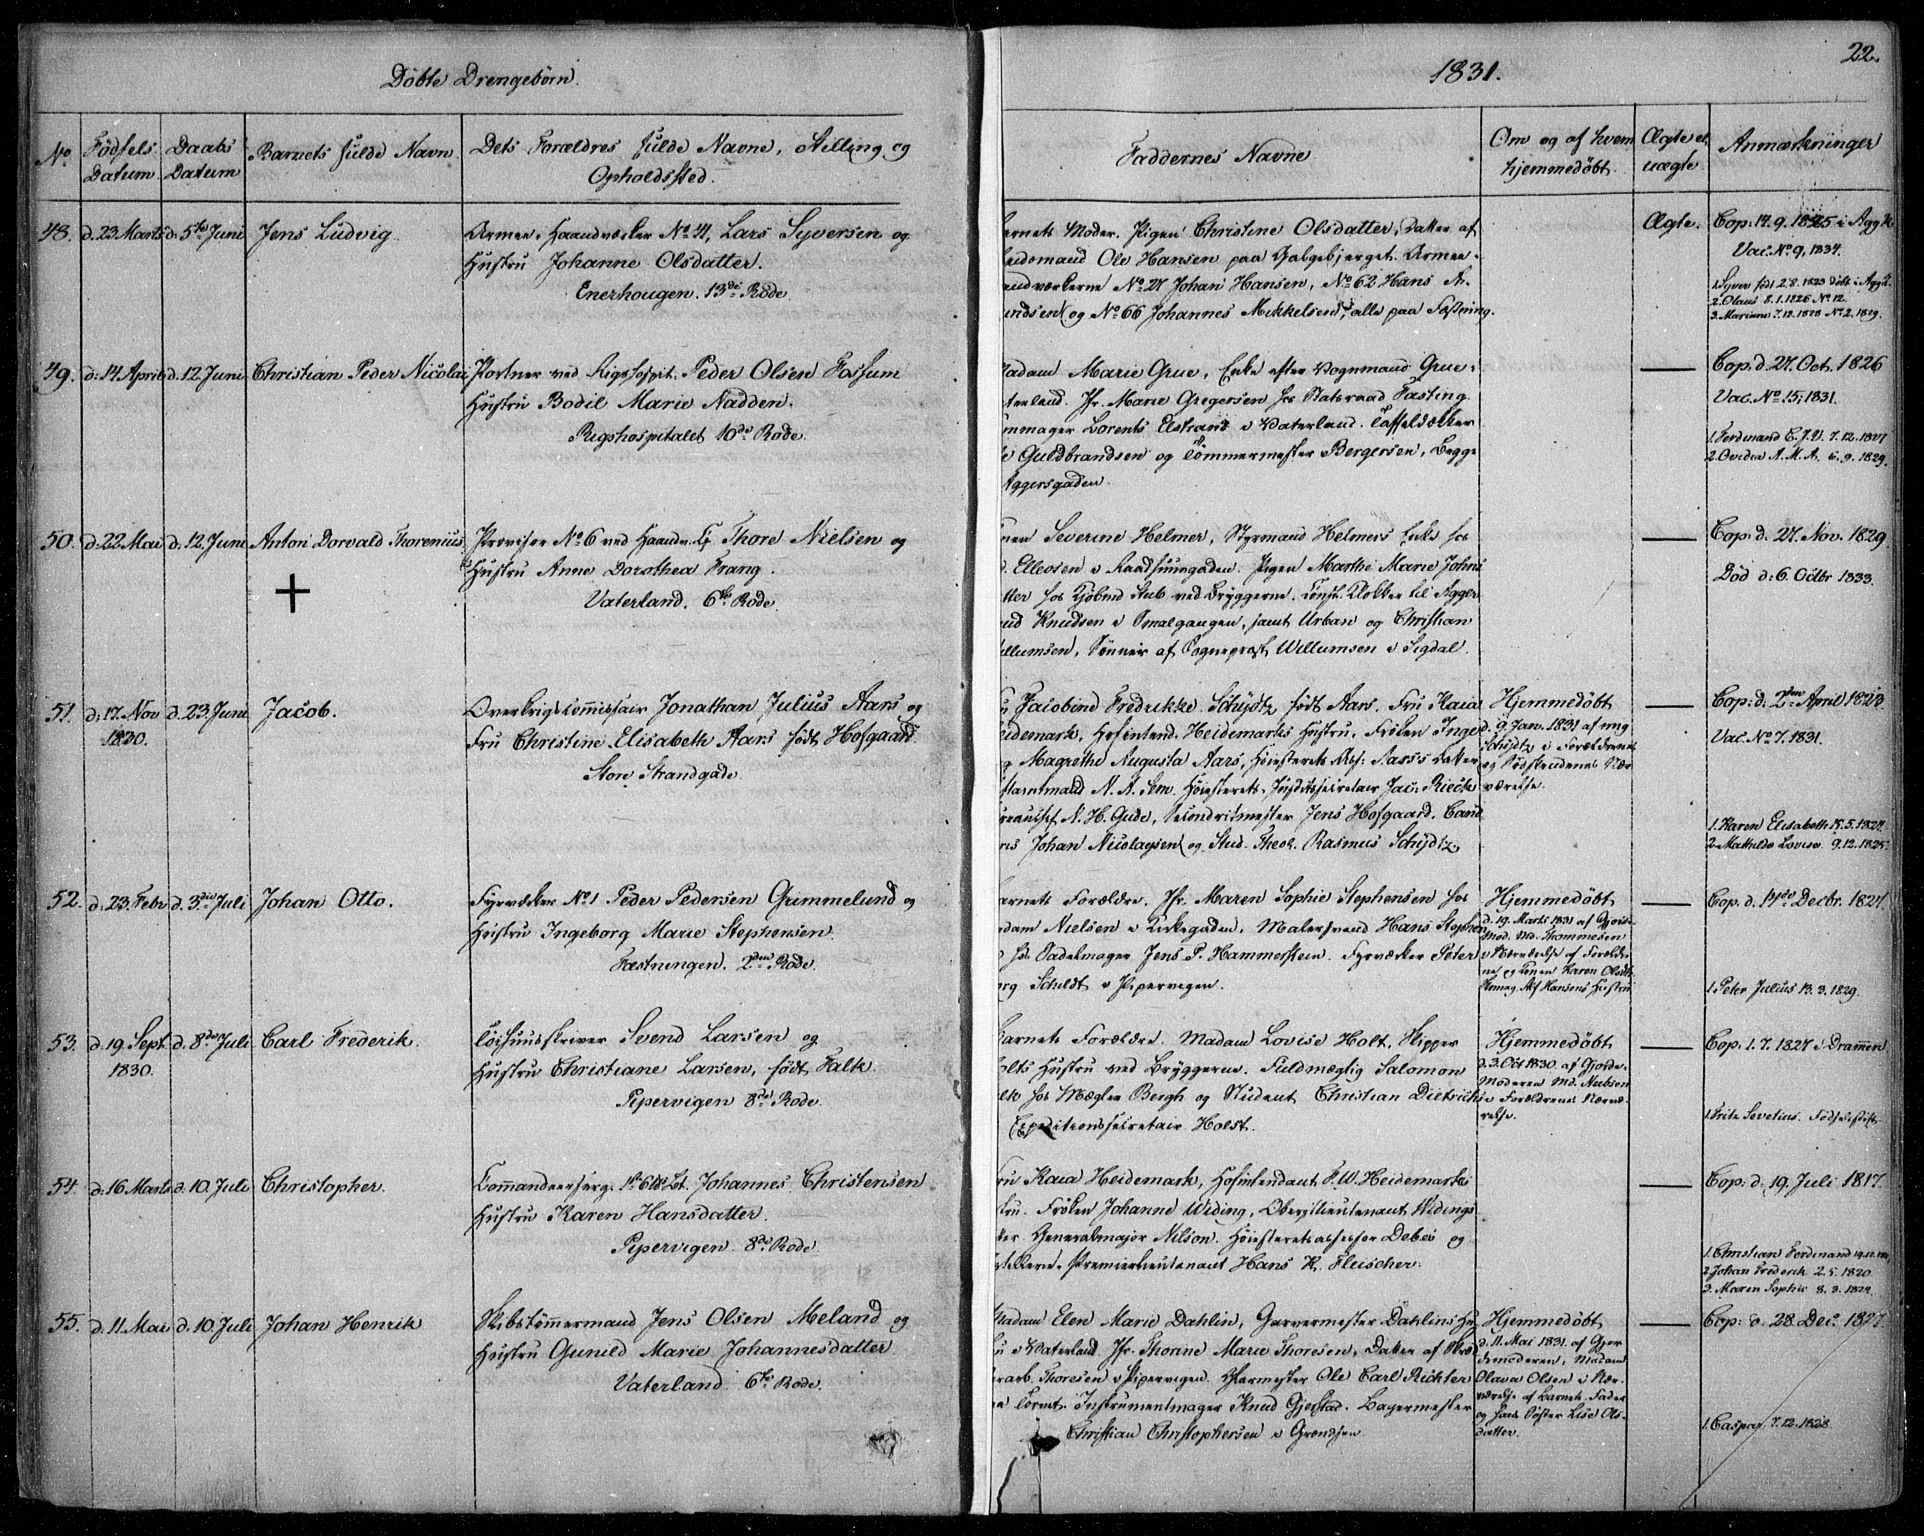 22.
Döbte Drengebörn.
1831.
No
Födsels Datum
Daabs Datum
Barnets fulde Navn
Dets Forældres fulde Navne, Stilling og
Opholdssted.
Faddernes Navne
Om og af hvem
hjemmedöbt.
Ægte el.
uægte
Anmærkninger
48. d. 23 Marts d. 5te Juni Jens Ludvig
Haandværker No 41, Lars Syversen og
Hustru Johanne Olsdatter.
Enerhougen. 13de Rode
Moder. Pigen Christine Olsdatter, Datter af
Ole Hansen paa Galgebjerget.
No 27 Johan Hansen, No 62 Hans A-
og No 66 Johannes Mikkelsen, alle paa Fæstning.
Ægte.
Cop: 14.9.1825 i Agg. K.
Vac. No 9, 1834.
1. Syver födt 2.8.1823 döbt i Agg.
2. Olaus 8.1.1826 No 12.
3. Mariane 7.12.1828 No 2. 1829.
49. d: 14 April d. 12 Juni Christian Peder Nicolai
Portner ved Rigshospit. Peder Olsen Fossum
Hustru Bodil Marie Nadden.
Rigshospitalet 10de Rode
Marie Grue, Enke efter Vognmand Grue i
Jfr. Marie Gregersen hos Statsraad Fasting
Lorents Elstrand i Vaterland. Taffeldækker
Guldbrandsen og Tömmermester Bergersen, begge
Aggersgaden.
Cop. d. 27. Oct. 1826
Vac. No 15, 1831.
1. Ferdinand C. J. V. 7.12.1827
2. Ovidia A. M. A. 6.9.1829.
50. d. 22 Mai d. 12. Juni Anton Dorvald Thorenius
Provisor No 6 ved Thore Nielsen og
Hustru Anne Dorothea Frang.
Vaterland. 6te Rode
Severine Helmer, Styrmand Helmers Enke hos
Ellevsen i Raadhuusgaden. Pigen Marthe Marie Johns
hos Kjöbmd Stub ved Bryggerne. Const. Klokker til Agger
Knudsen i Smalgangen, samt Urban og Christian
Willumsen, Sönner af Sognepræst Willumsen i Sigdal.
Cop: d. 27. Nov. 1829
Död d: 6. Octbr 1833.
51. d: 17. Nov 1830. d. 23. Juni Jacob.
Overkrigscommissair Jonathan Julius Aars og
Fru Christine Elisabeth Aars födt Hofgaard
Store Strandgade.
Jacobine Fredrikke Schydtz födt Aars. Fru Kaia
Heidemark, Hofintend. Heidemarks Hustru, Fröken Inger
Magrethe Augusta Aars, Höiesterets Ass: Aarss Datter
N. A. Sem. Höiesterets-Justitssecretair Jac: Rieck
N. H. Gude, Secondritmester Jens Hofgaard. Cand
Johan Nicolaysen og Stud. Theol. Rasmus Schydtz
Hjemmedöbt
d. 9. Jan. 1831 af mig
Schydtz i Forældrenes
og Værelse.
Cop: d. 2den April 1823
Vac. No 7. 1831.
1. Karen Elisabeth 15.5.1824.
2. Mathilde Lovise 9.12.1825.
52. d. 23. Febr d. 3die Juli Johan Otto.
Fyrværker No 1 Peder Pedersen Grimmelund og
Hustru Ingeborg Marie Stephensen.
Fæstningen. 2den Rode.
Barnets Forældre. Jfr. Maren Sophie Stephensen hos
Madam Nielsen i Kirkegaden. Malersvend Hans Stephen
hos Sadelmager Jens P. Hammerstein. Fyrværker Peter
Schildt i Pipervigen.
Hjemmedöbt
d. 19. Marts 1831 af Gjords
Mod. Md. Thommesen
i Nærværelse af Forældre
ne og Konen Karen Olsdtr.
Hansens Hustru
Cop. d. 14de Decbr. 1827.
1. Peter Julius 13.3.1829.
53. d. 19 Sept. 1830. d. 8de Juli Carl Frederik.
Töihuusskriver Svend Larsen og
Hustru Christiane Larsen, födt Falk.
Pipervigen 8de Rode.
Barnets Forældre. Madam Lovise Holt, Skipper
Holts Hustru ved Bryggerne. Fuldmægtig Salomon
Falk hos Mægler Bergh og Student Christian Dietrichs
Expeditionssecretair Holst.
Hjemmedöbt
d. 3. Oct 1830 af Gjorde-
Moderen Md. Nielsen
i Forældrenes Nærvæ-
relse.
Cop. 1.7.1827 i Drammen
1. Fritz Severius.
54. d. 16 Marts d. 10. Juli Christopher.
Commandeerserg. Johannes Christensen
Hustru Karen Hansdatter.
Pipervigen. 8de Rode
Fru Kaia Heidemark, Hofintendant F. W. Heidemarks
Hustru. Fröken Johanne Widing, Oberstlieutenant Widings
Datter. Generalmajor Nilson. Höiesteretsassessor Debes og
Premierlieutenant Hans K. Fleischer.
Cop: d. 19. Juli 1817.
1. Christian Ferdinand
2. Johan Frederik 2.5.1820.
3. Maren Sophie 8.3.1824.
55. d. 11. Mai d. 10. Juli Johan Henrik
Skibstömmermand Jens Olsen Meland og
Hustru Gunild Marie Johannesdatter
Vaterland. 6te Rode.
Madam Elen Marie Dahlin, Garvermester Dahlins Hu
i Vaterland. Jfr. Thorine Marie Thoresen, Datter af
Thoresen i Pipervigen. Ole Carl Richter
Instrumentmager Knud Gjestad. Bagermester
Christian Christophersen i Grændsen
Hjemmedöbt
d. 11. Mai 1831. af Gjor
demoderen, Madam
Olava Olsen i Nær
værelse af Barnets Fader
og hans Söster Lise Ols-
datter.
Cop: d. 28. Dec. 1827.
1. Caspar 7.12.1828